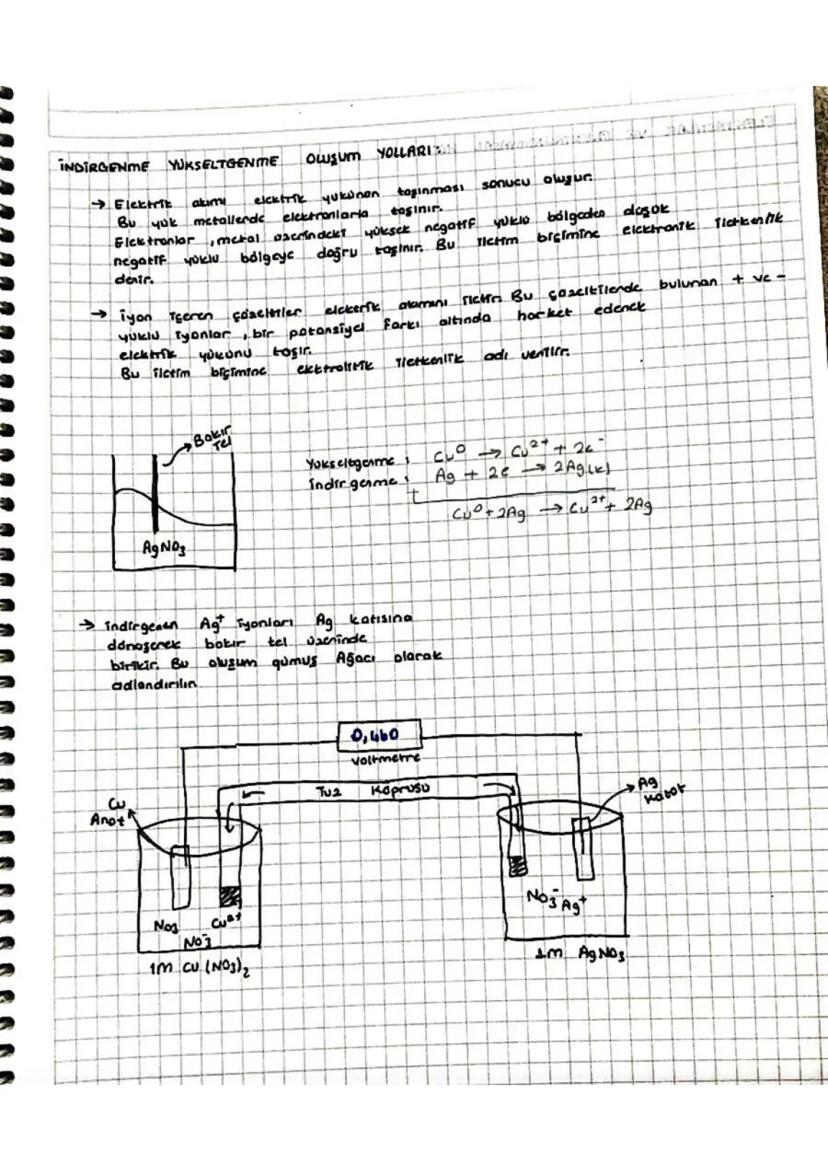 İNDİRGENME YÜKSELTGENME OLUŞUM YOLLARI:
→ Elektrik akımı elektrik yükünün taşınması sonucu oluşur.
Bu yük metallerde elektronlarla taşınır.
Elektronlar, metal üzerindeki yüksek negatif yüklü bölgeden düşük
negatif yüklü bölgeye doğru taşınır. Bu iletim biçimine elektronik iletkenlik
denir.
→ İyon içeren çözeltiler elekerik akımını iletir. Bu çözeltilerde bulunan + ve -
yüklü iyonlar, bir potansiyel farkı altında harket ederek
elektrik yükünü taşır.
Bu iletim biçimine elektrolitik iletkenlik adı verilir.
Bakır
Tel
AgNO3
Yükseltgenme : Cu⁰ → Cu²⁺ + 2e⁻
İndirgenme : Ag + 2e → 2Ag(k)
+
Cu⁰ + 2Ag → Cu²⁺ + 2Ag
→ İndirgenen Ag⁺ iyonları Ag katısına
dönüşerek bakır tel üzerinde
birikir. Bu oluşum gümüş Ağacı olarak
adlandırılır.
0,460
voltmetre
Tuz Köprüsü
Cu
Anot
Ag
Katot
NO3 Cu²⁺
NO3⁻
1M Cu(NO3)2
NO3⁻ Ag⁺
1M AgNO3